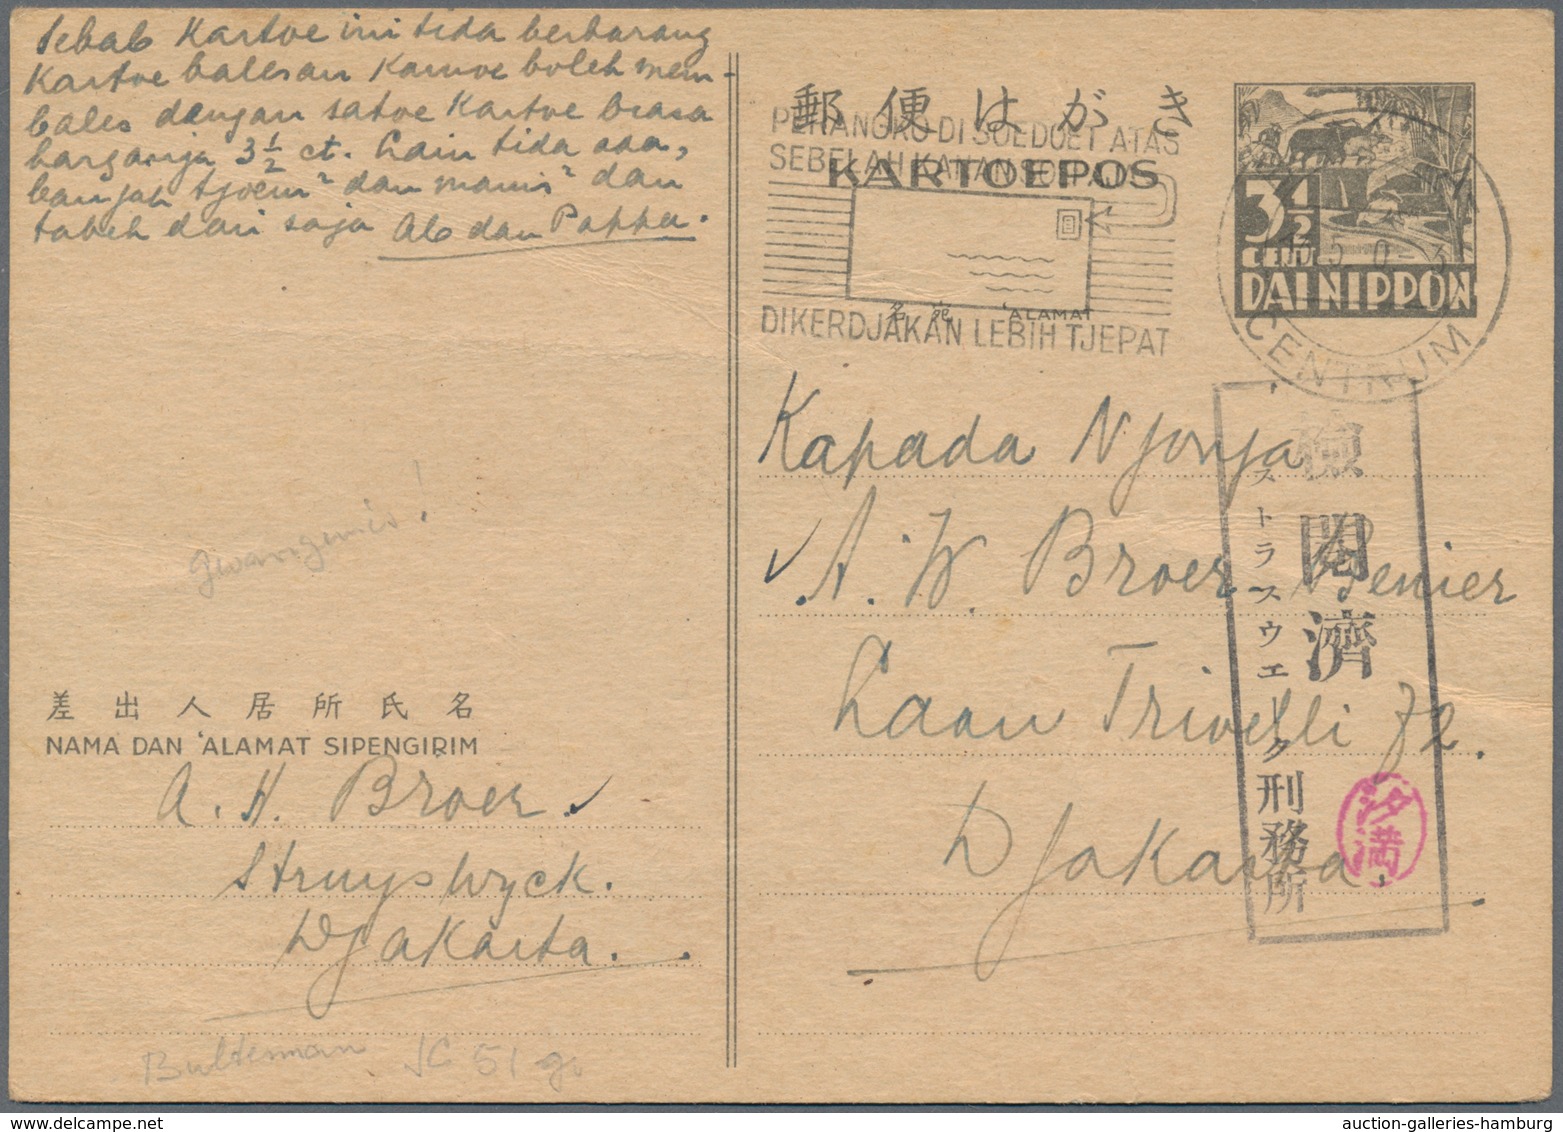 Sebab Kartoe ini tida berbarang
Kartoe balesan Kamoe boleh mem-
bales dengan satoe Kartoe biasa
harganja 3½ ct. Lain tida ada,
banjak tjoem² dan manis² dan
tabeh dari saja Ab dan Pappa.
郵便はがき
KARTOEPOS
PERANGKO DI SOEDOET ATAS
SEBELAH KANAN
名宛 'ALAMAT
DIKERDJAKAN LEBIH TJEPAT
3½
CENT
DAI NIPPON
CENTRUM
Kapada Njonja
A. W. Broer Penier
Laan Trivelli 72.
Djakarta
検閲済
ストラスウエーク刑務所
汐満
差出人居所氏名
NAMA DAN 'ALAMAT SIPENGIRIM
A. H. Broer.
Struyswyck.
Djakarta.
Bulterman JC 51
auction-galleries-hamburg